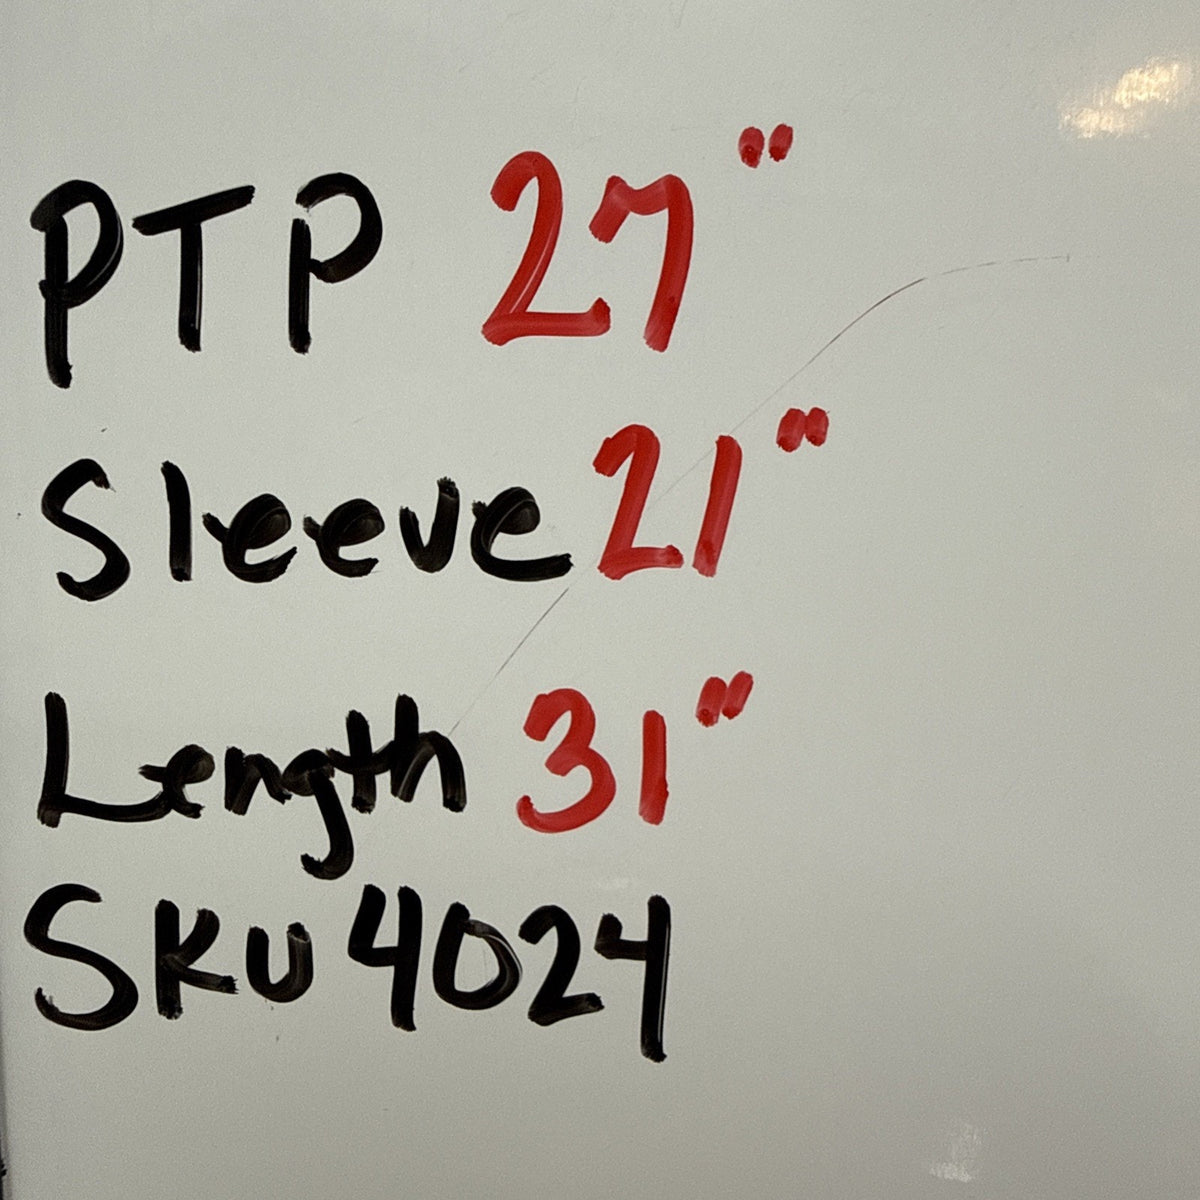 PTP 27"
Sleeve 21"
Length 31"
SKU 4024